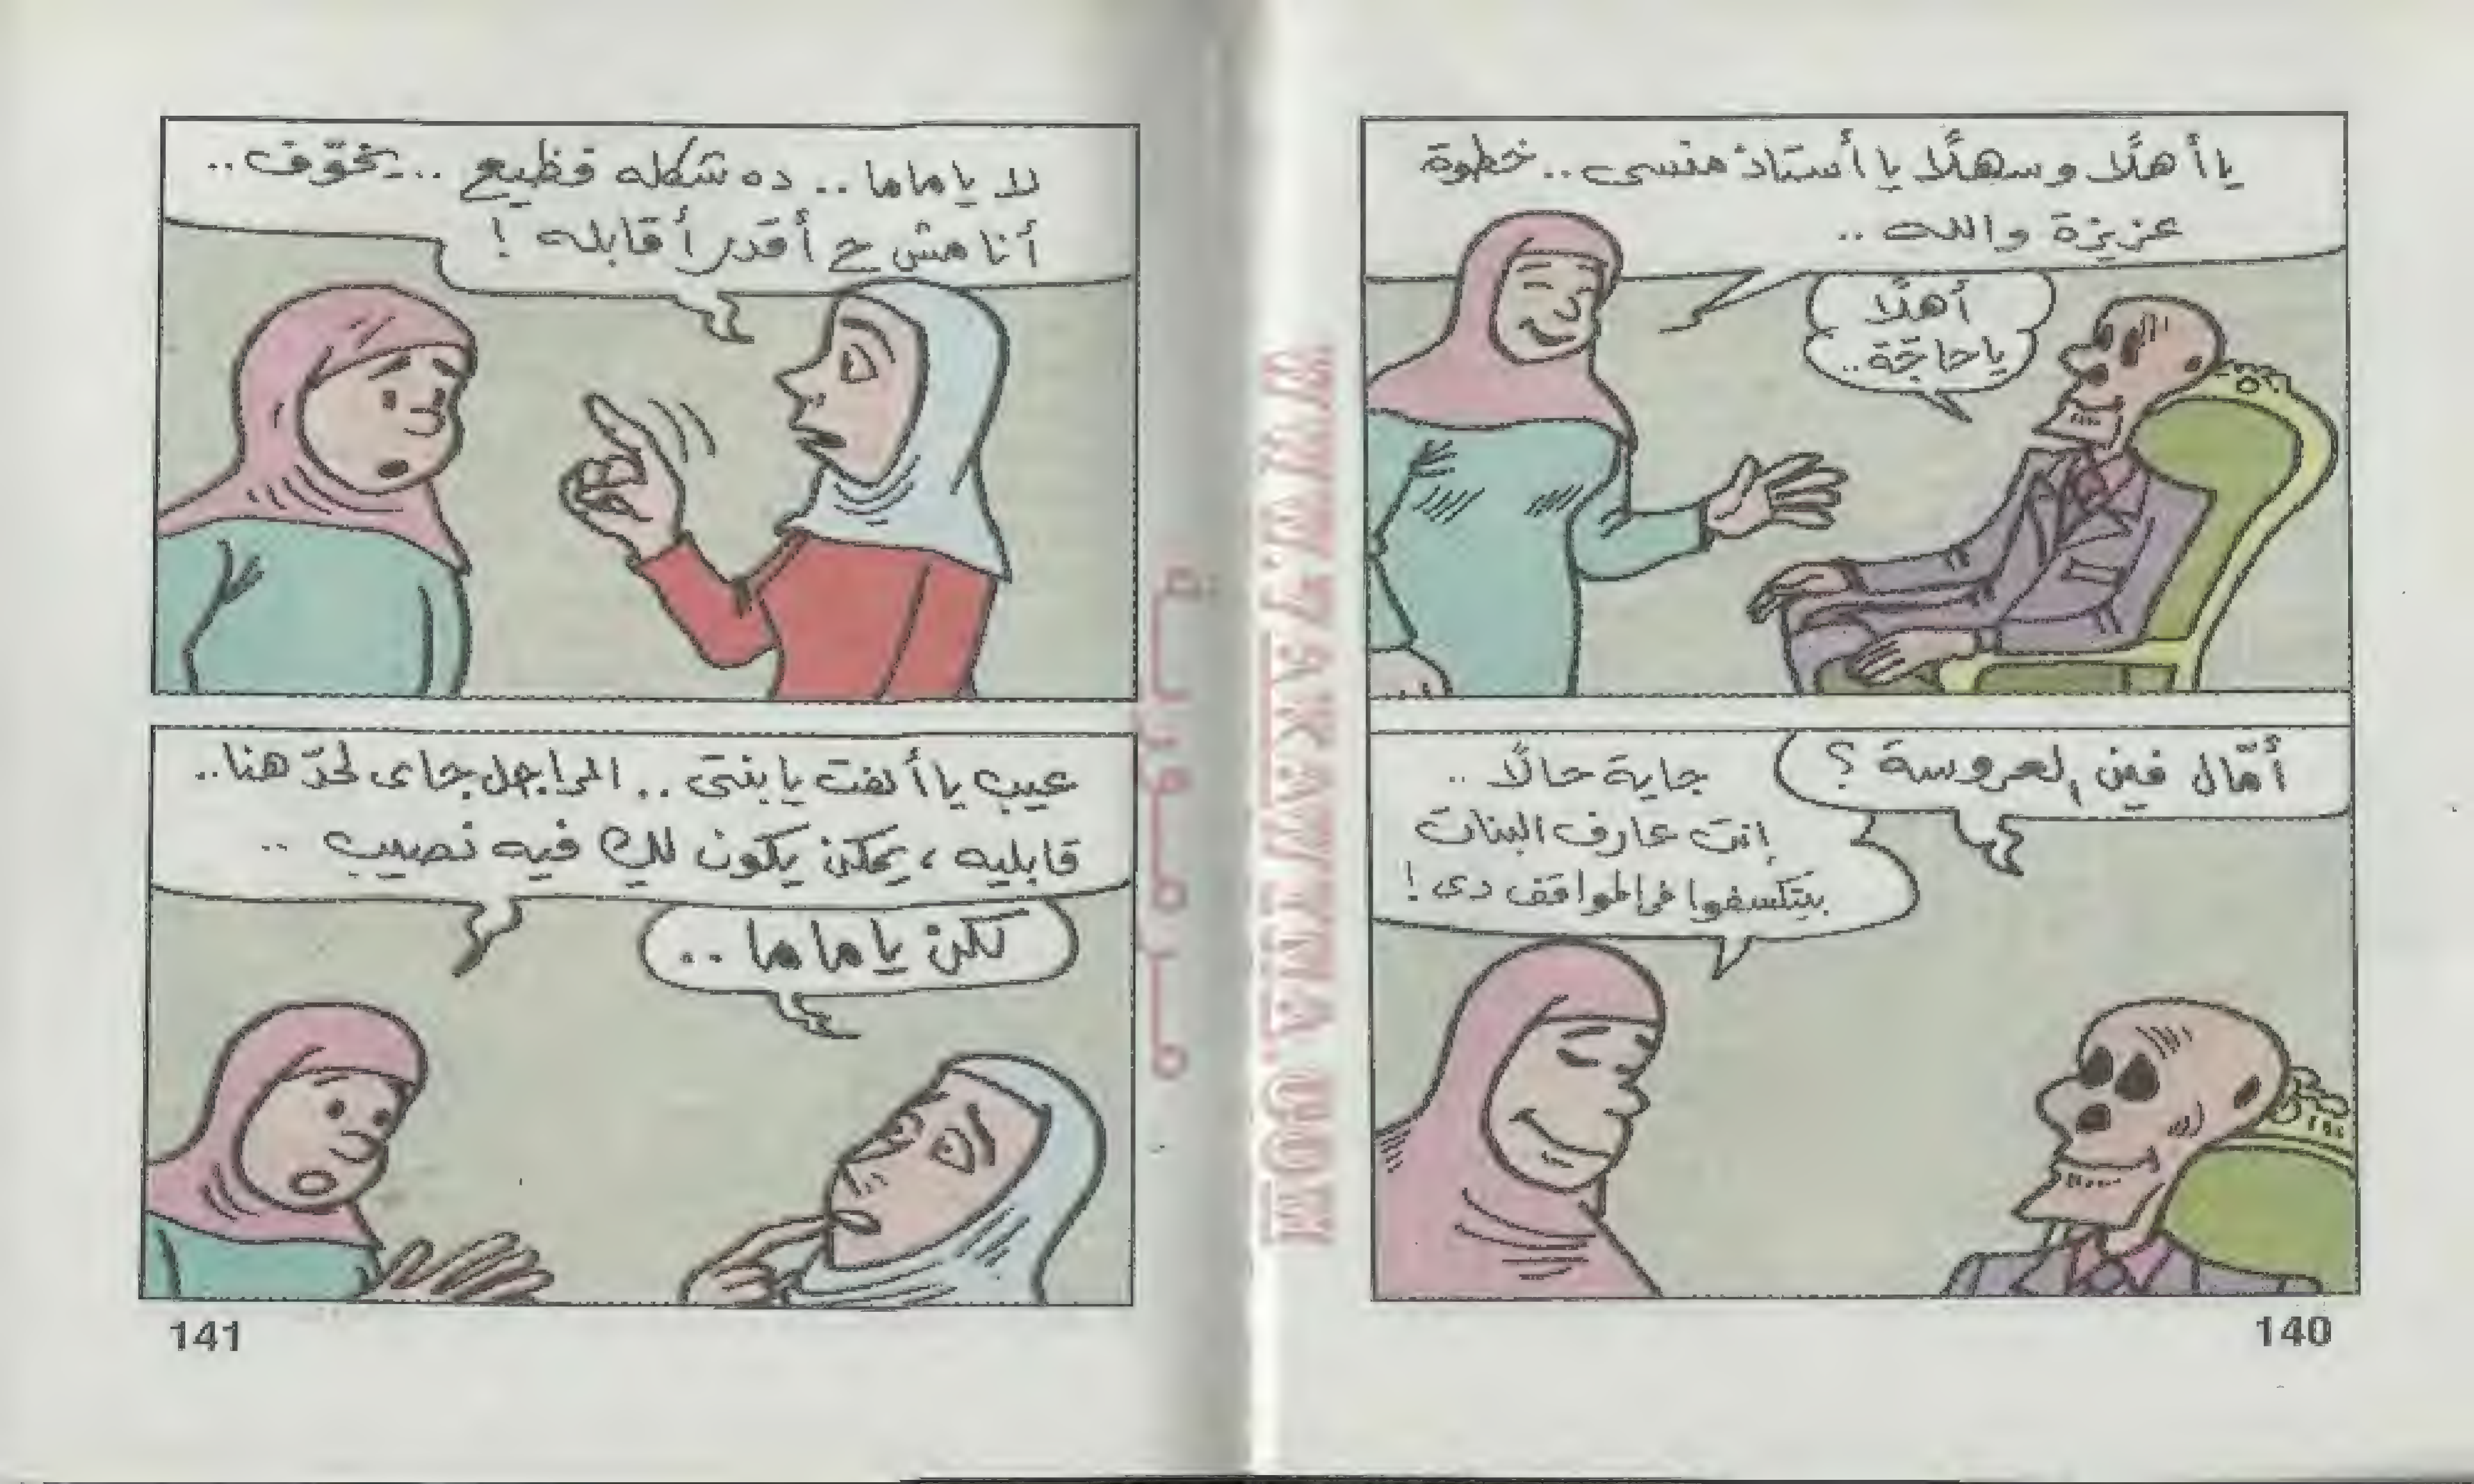 يا أهلًا وسهلًا يا أستاذ منسى.. خطوة
عزيزة والله ..
أهلًا
يا حاجّة..
أمّال فين العروسة ؟
جاية حالًا ..
إنت عارف البنات
بيتكسفوا فى المواقف دى !
140
لا يا ماما .. ده شكله فظيع .. يخوّف ..
أنا مش ح أقدر أقابله !
عيب يا ألفت يا بنتى .. الراجل جاى لحدّ هنا..
قابليه ، يمكن يكون لك فيه نصيب ..
لكن يا ماما ..
141